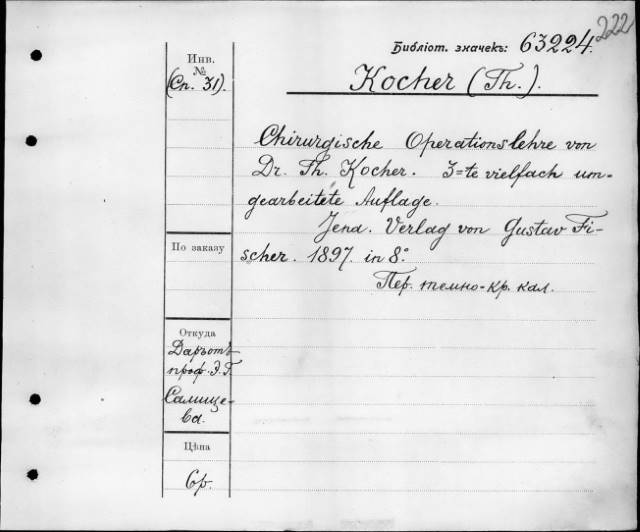 222
Библіот. значекъ: 63224.
Kocher (Th.).
Инв.
№
(Сп. 31).
Chirurgische Operationslehre von
Dr. Th. Kocher. 3=te vielfach um-
gearbeitete Auflage.
Jena. Verlag von Gustav Fi-
scher. 1897. in 8°.
Пер. темно-кр. кал.
По заказу
Откуда
Даръ отъ
проф. Э. Г.
Салище-
ва.
Цѣна
6 р.